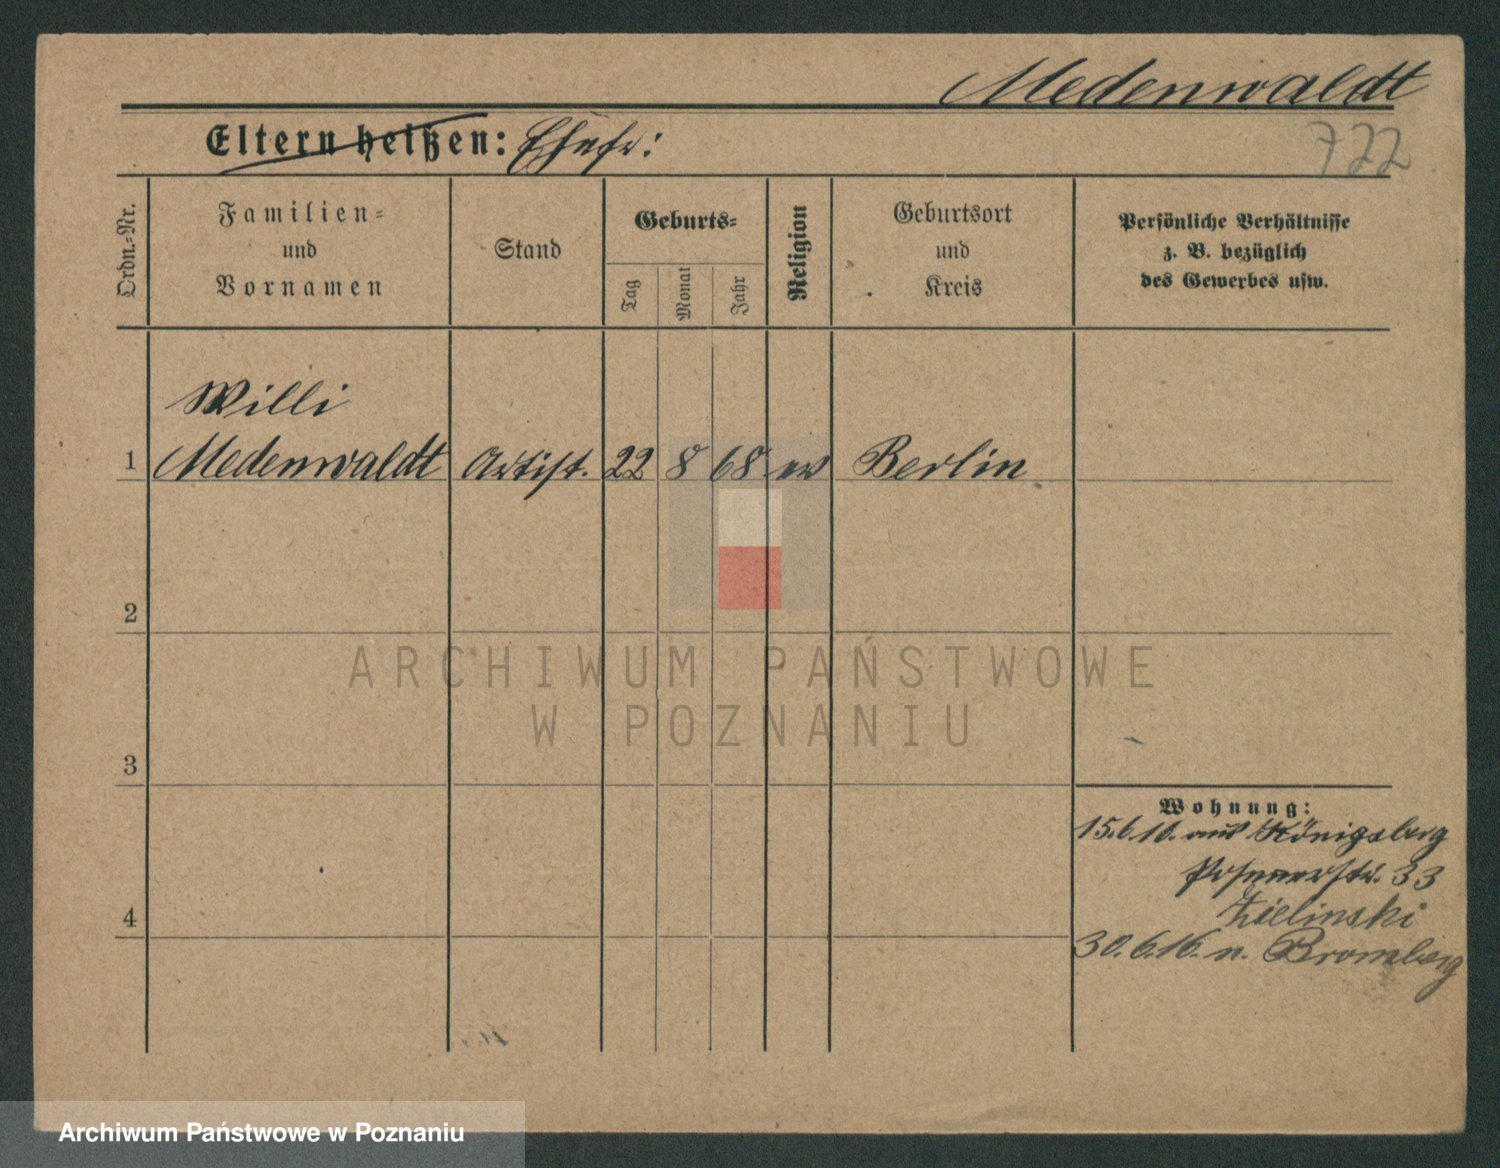 Medenwaldt
Eltern heißen: Ehefr:
722
Ordn.-Nr.
Familien-
und
Vornamen
Stand
Geburts-
Tag
Monat
Jahr
Religion
Geburtsort
und
Kreis
Persönliche Verhältnisse
z. B. bezüglich
des Gewerbes usw.
Willi
1 Medenwaldt Artist. 22 8 68 ev Berlin
2
ARCHIWUM PAŃSTWOWE
W POZNANIU
3
Wohnung:
15.6.16. aus Königsberg
Posenerstr. 33
Zielinski
4
30.6.16. n. Bromberg
Archiwum Państwowe w Poznaniu